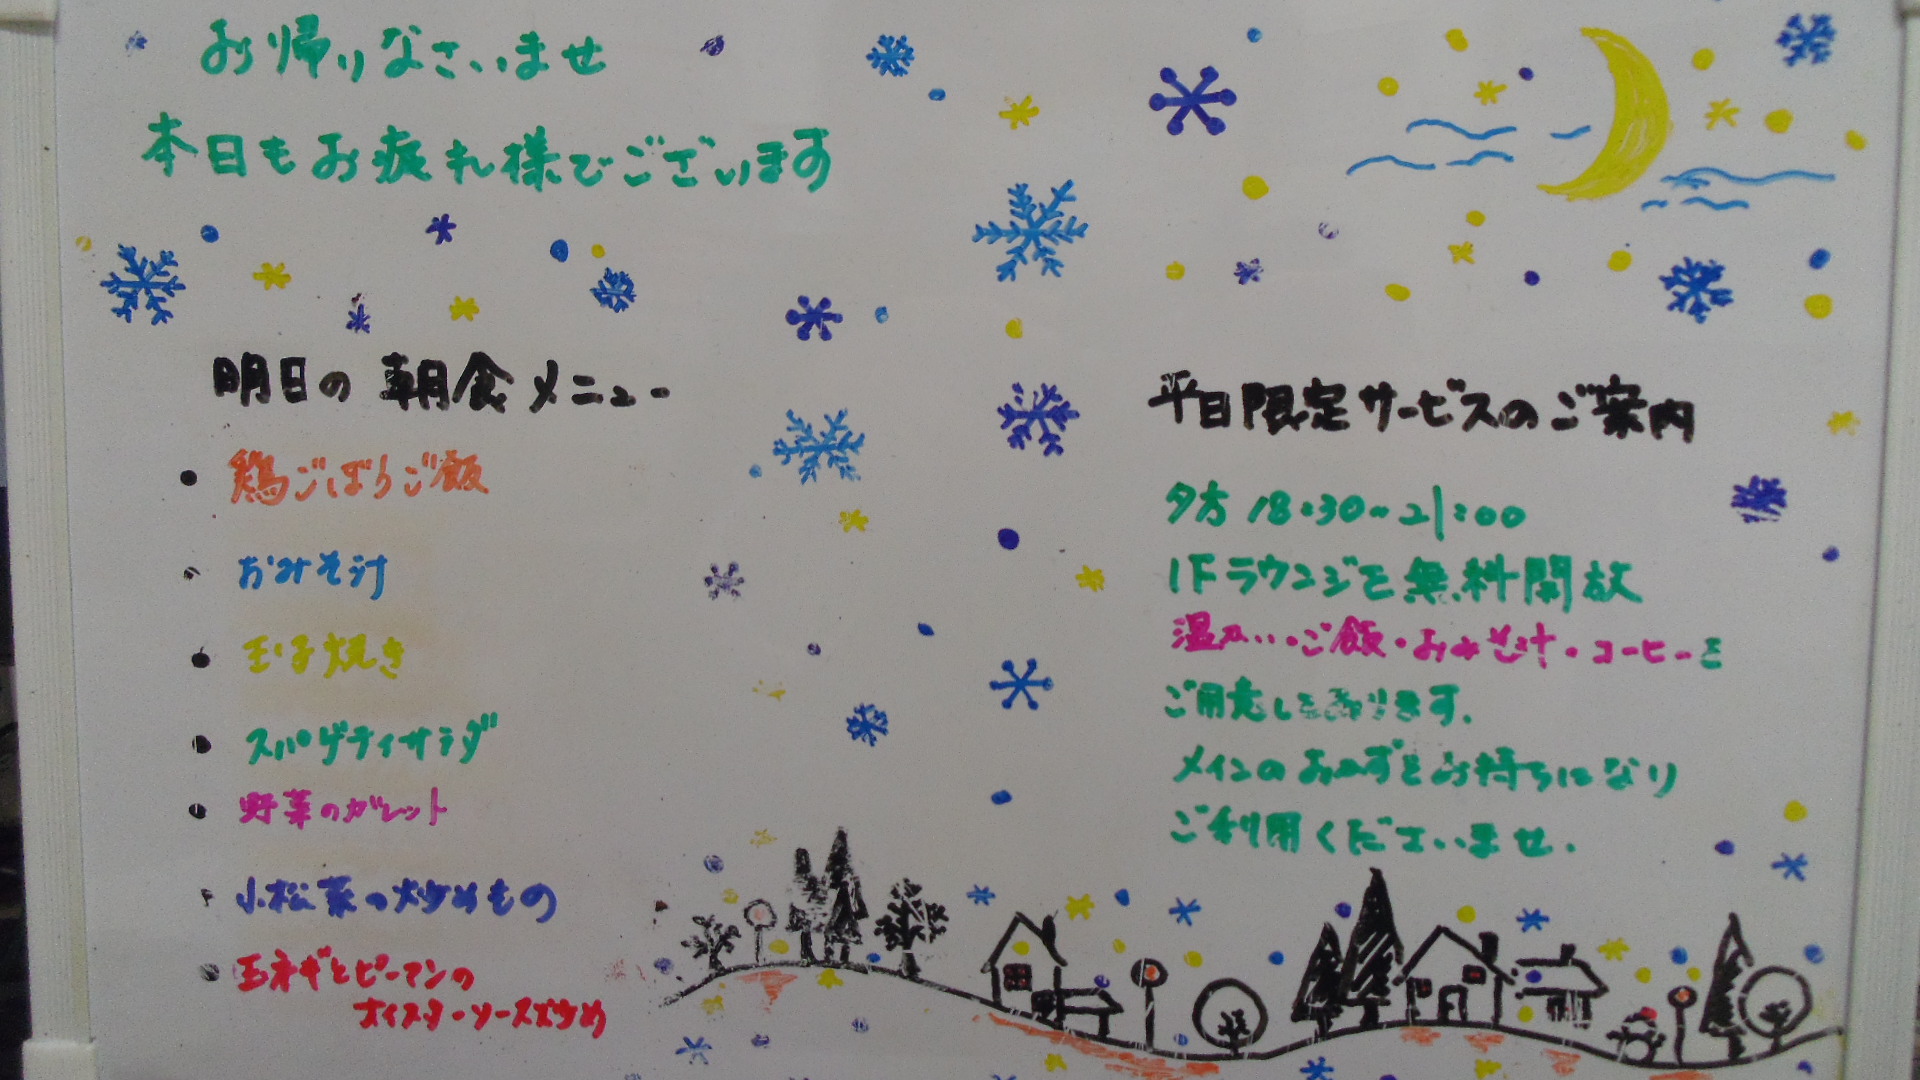 お帰りなさいませ
本日もお疲れ様でございます
明日の朝食メニュー
・鶏ごぼうご飯
・おみそ汁
・玉子焼き
・スパゲティサラダ
・野菜のガレット
・小松菜の炒めもの
・玉ネギとピーマンの
オイスターソース炒め
平日限定サービスのご案内
夕方 18:30~21:00
1Fラウンジを無料開放
温かい・ご飯・おみそ汁・コーヒーを
ご用意しております。
メインのおかずをお持ちになり
ご利用くださいませ。